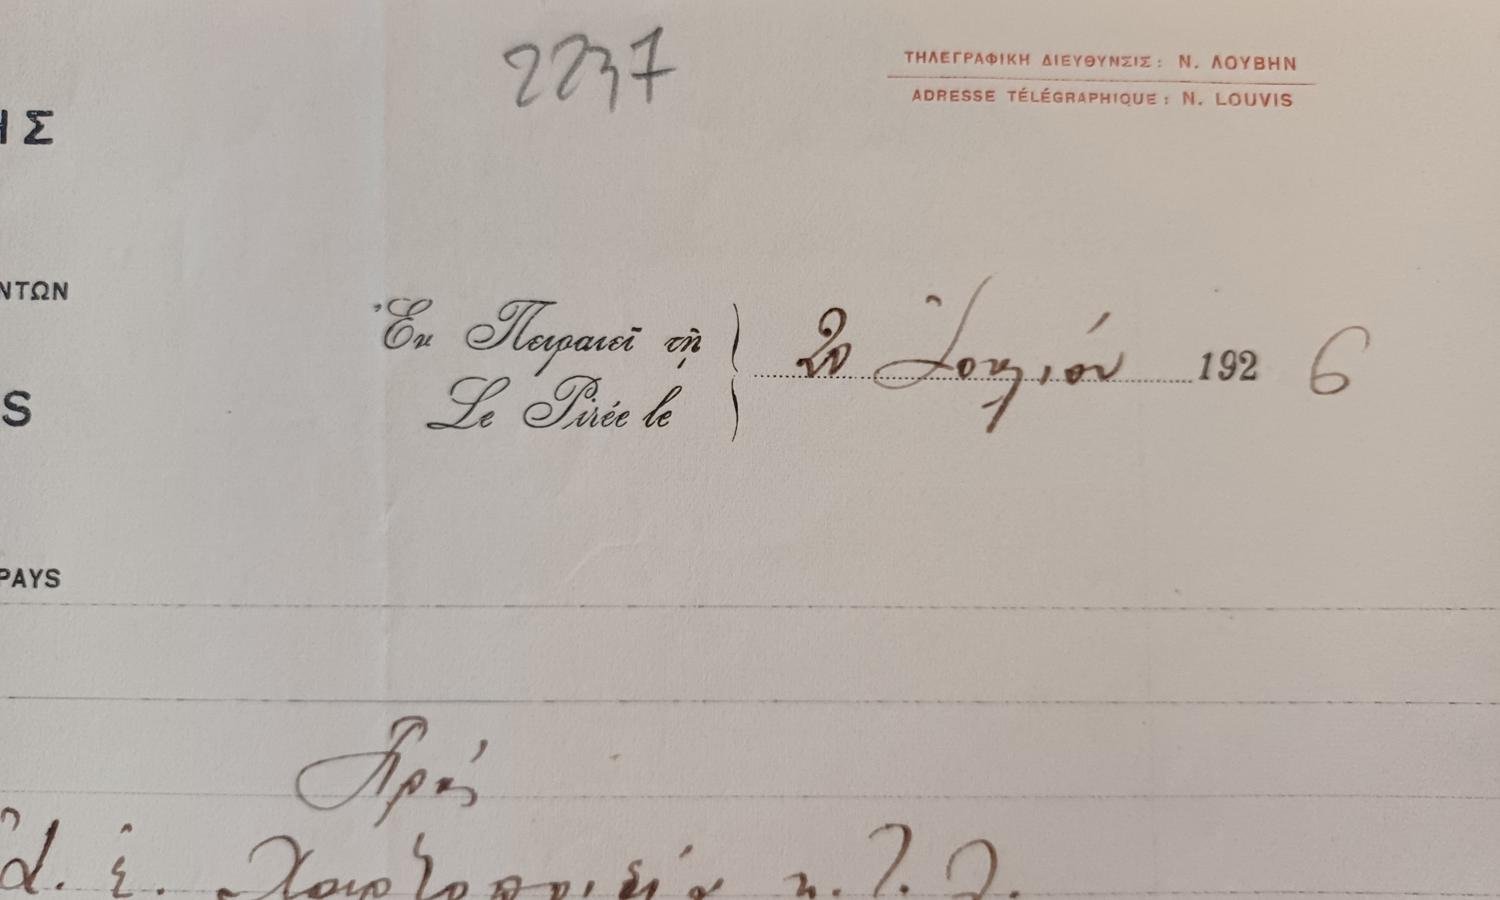 2237
ΤΗΛΕΓΡΑΦΙΚΗ ΔΙΕΥΘΥΝΣΙΣ: Ν. ΛΟΥΒΗΝ
ADRESSE TÉLÉGRAPHIQUE: N. LOUVIS
ΗΣ
ΝΤΩΝ
Ἐν Πειραιεῖ τῇ
20 Ἰουλίου 192 6
Le Pirée le
S
PAYS
Πρὸς
Χαρτοποιεία κ.